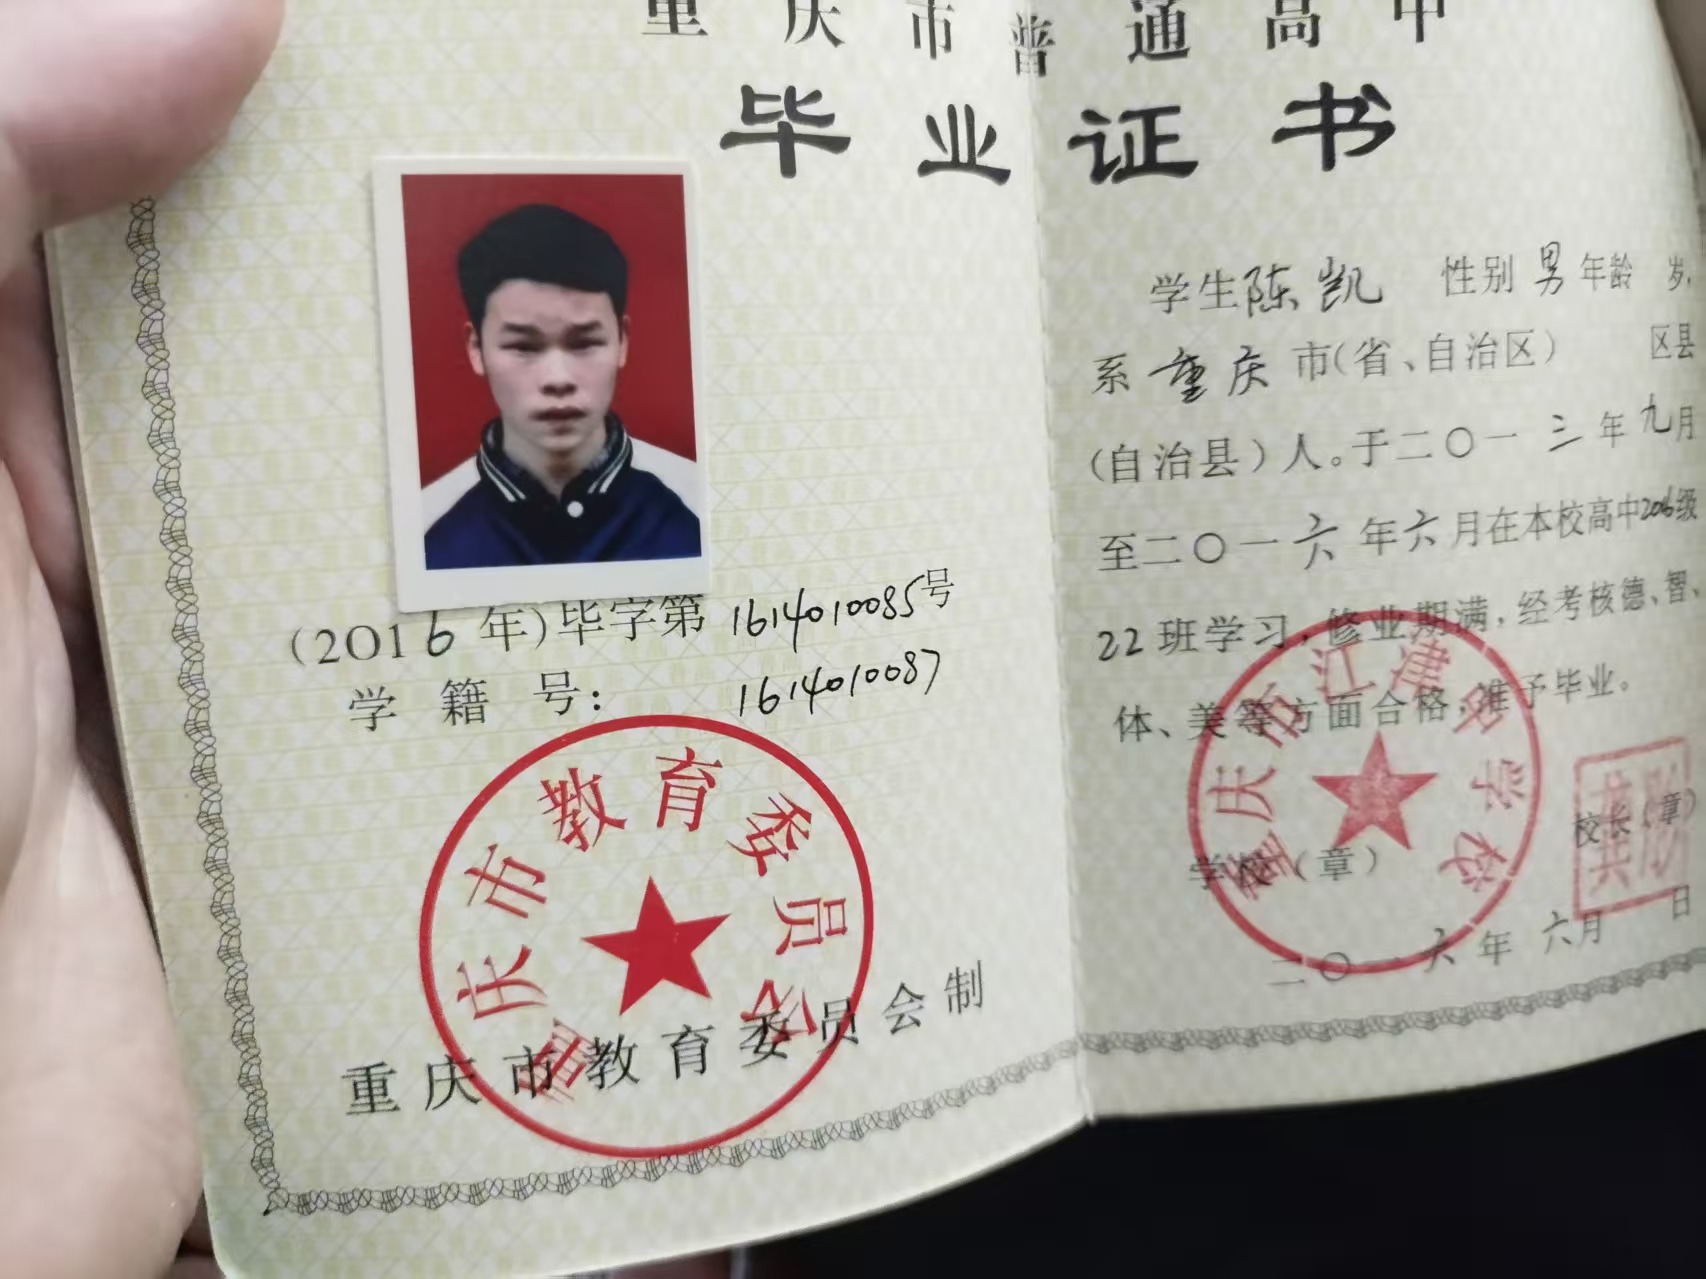 重庆市普通高中
毕业证书
(2016年)毕字第1614010085号
学籍号：1614010087
重庆市教育委员会
重庆市教育委员会制
学生陈凯 性别男年龄 岁，
系重庆市(省、自治区) 区县
(自治县)人。于二〇一三年九月
至二〇一六年六月在本校高中2016级
22班学习，修业期满，经考核德、智、
体、美等方面合格，准予毕业。
重庆市江津 学校
学校(章)
校长(章)
二〇一六年六月 日